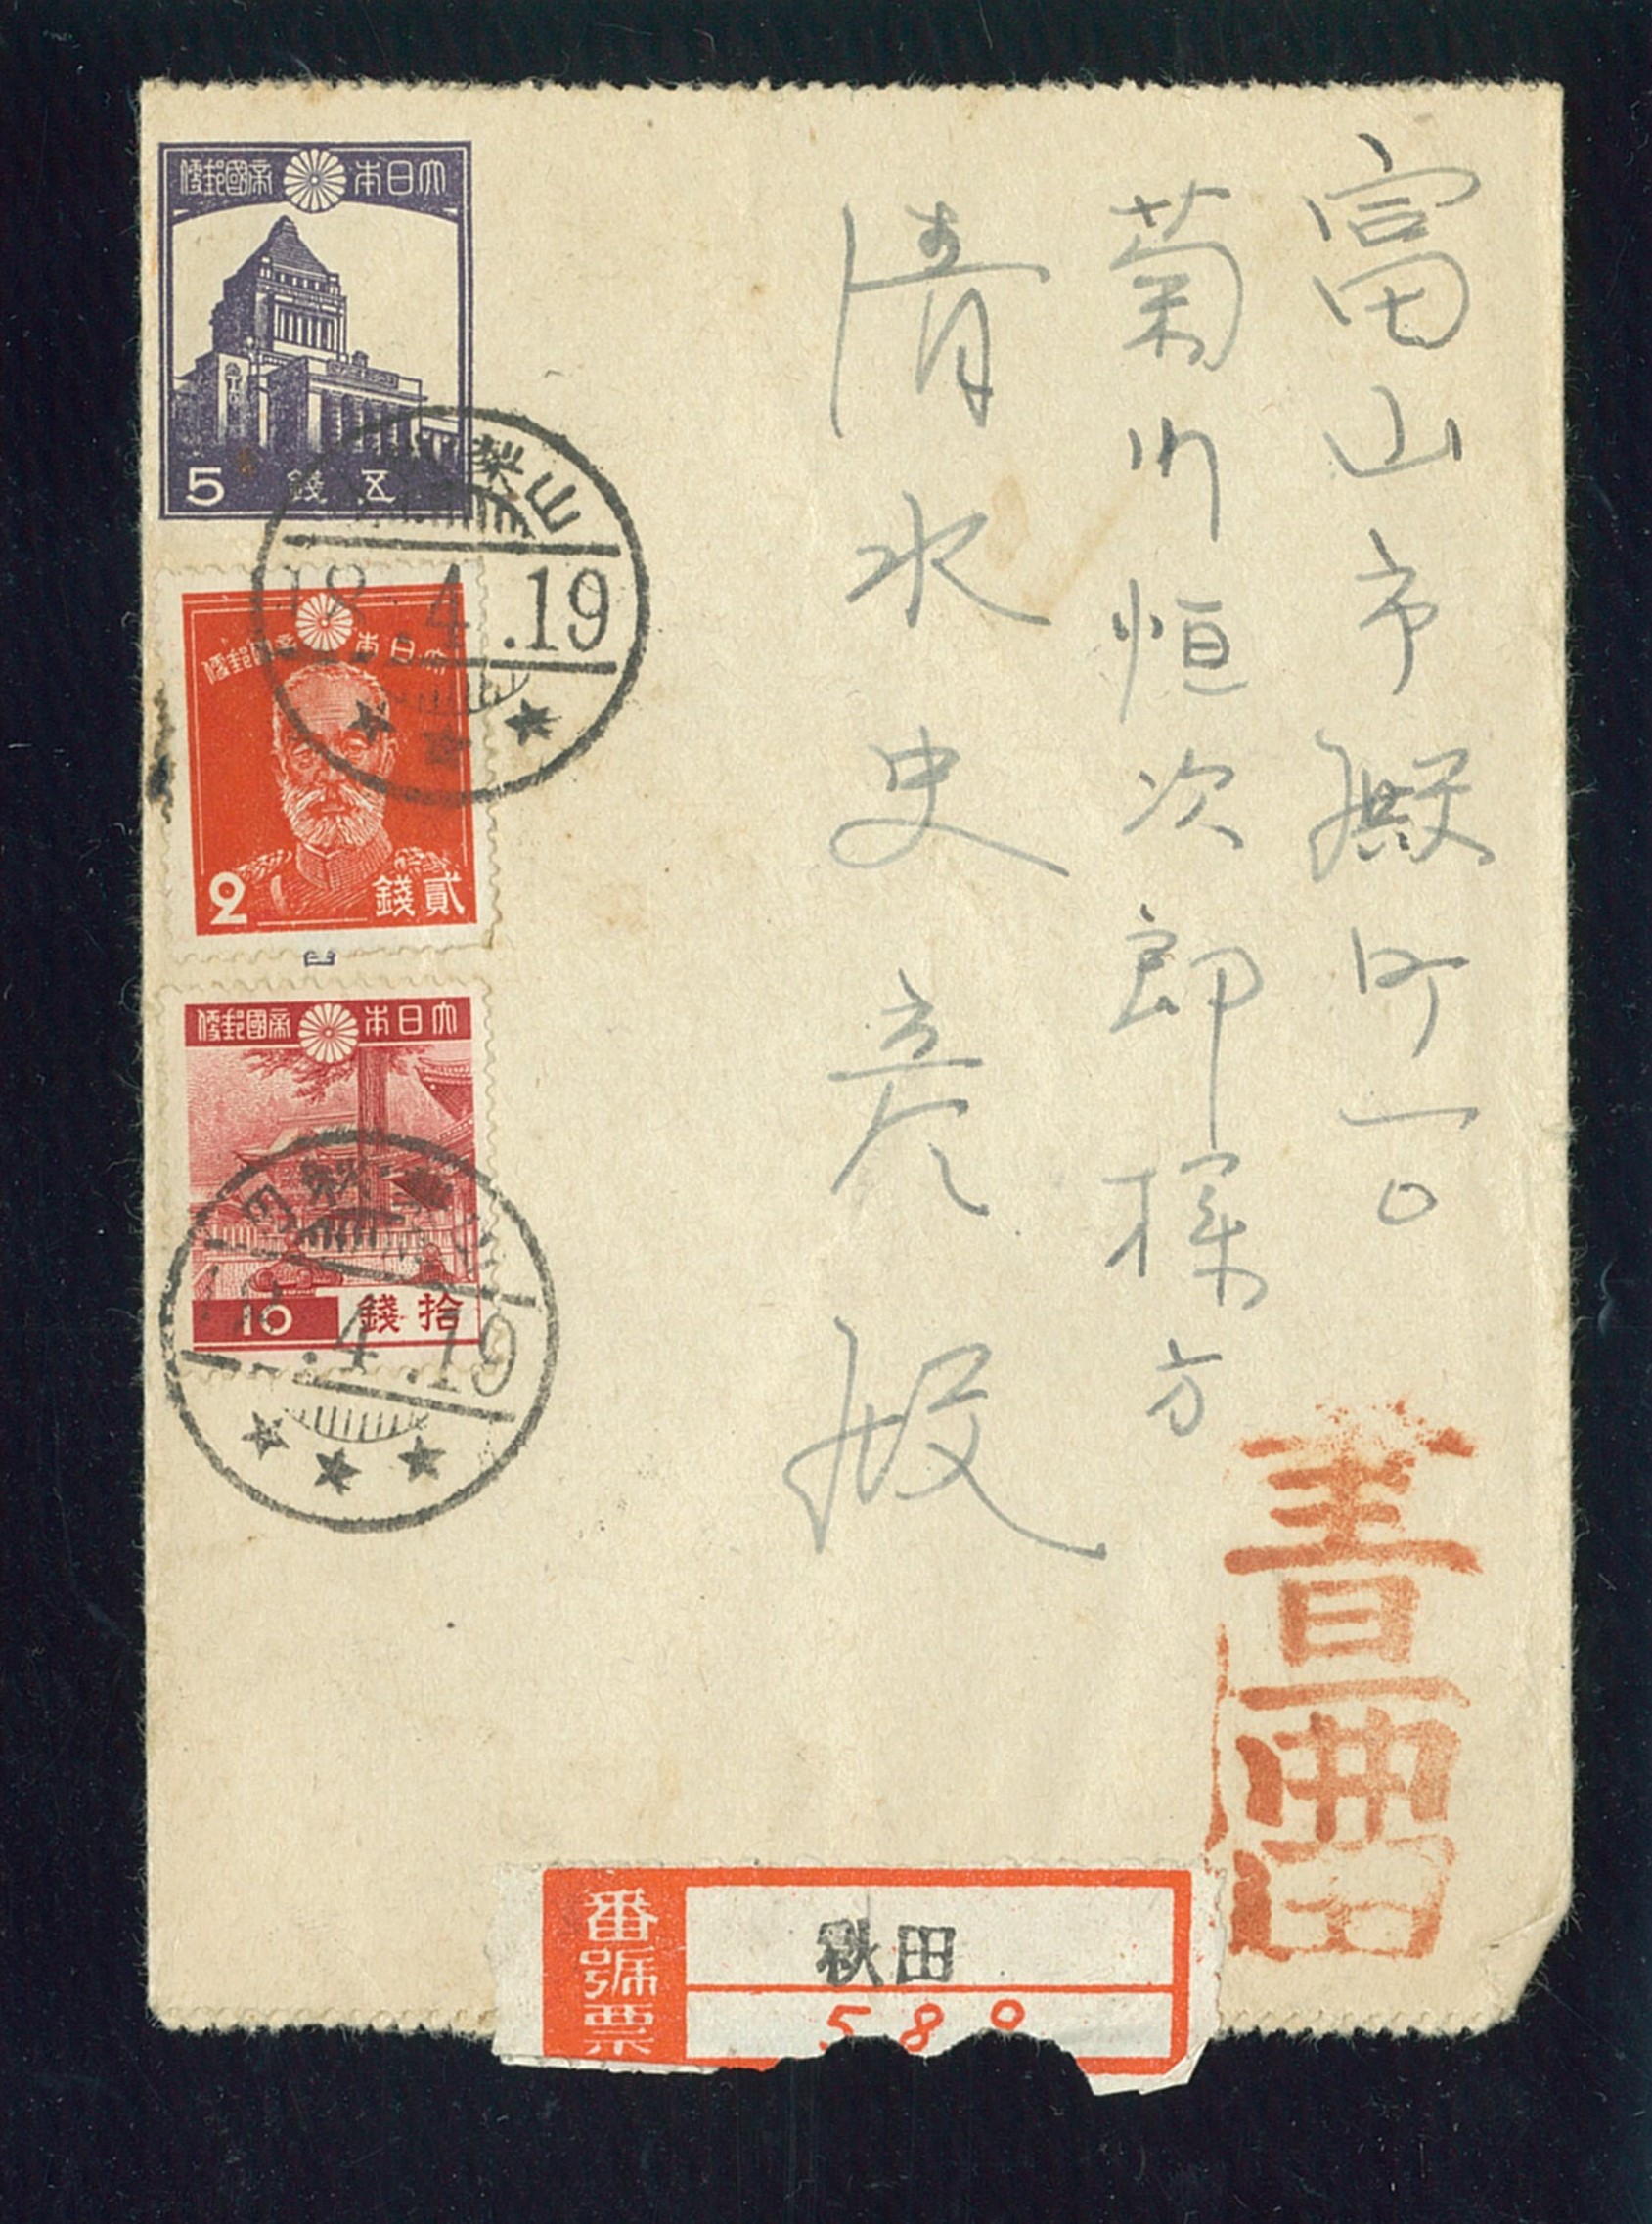 富山市殿町一〇
菊川恒次郎様方
清水史彦殿
書
留
大日本帝國郵便
5 五錢
大日本帝國郵便
2 貳錢
大日本帝國郵便
10 拾錢
18.4.19
.4.19
番號票
秋田
589